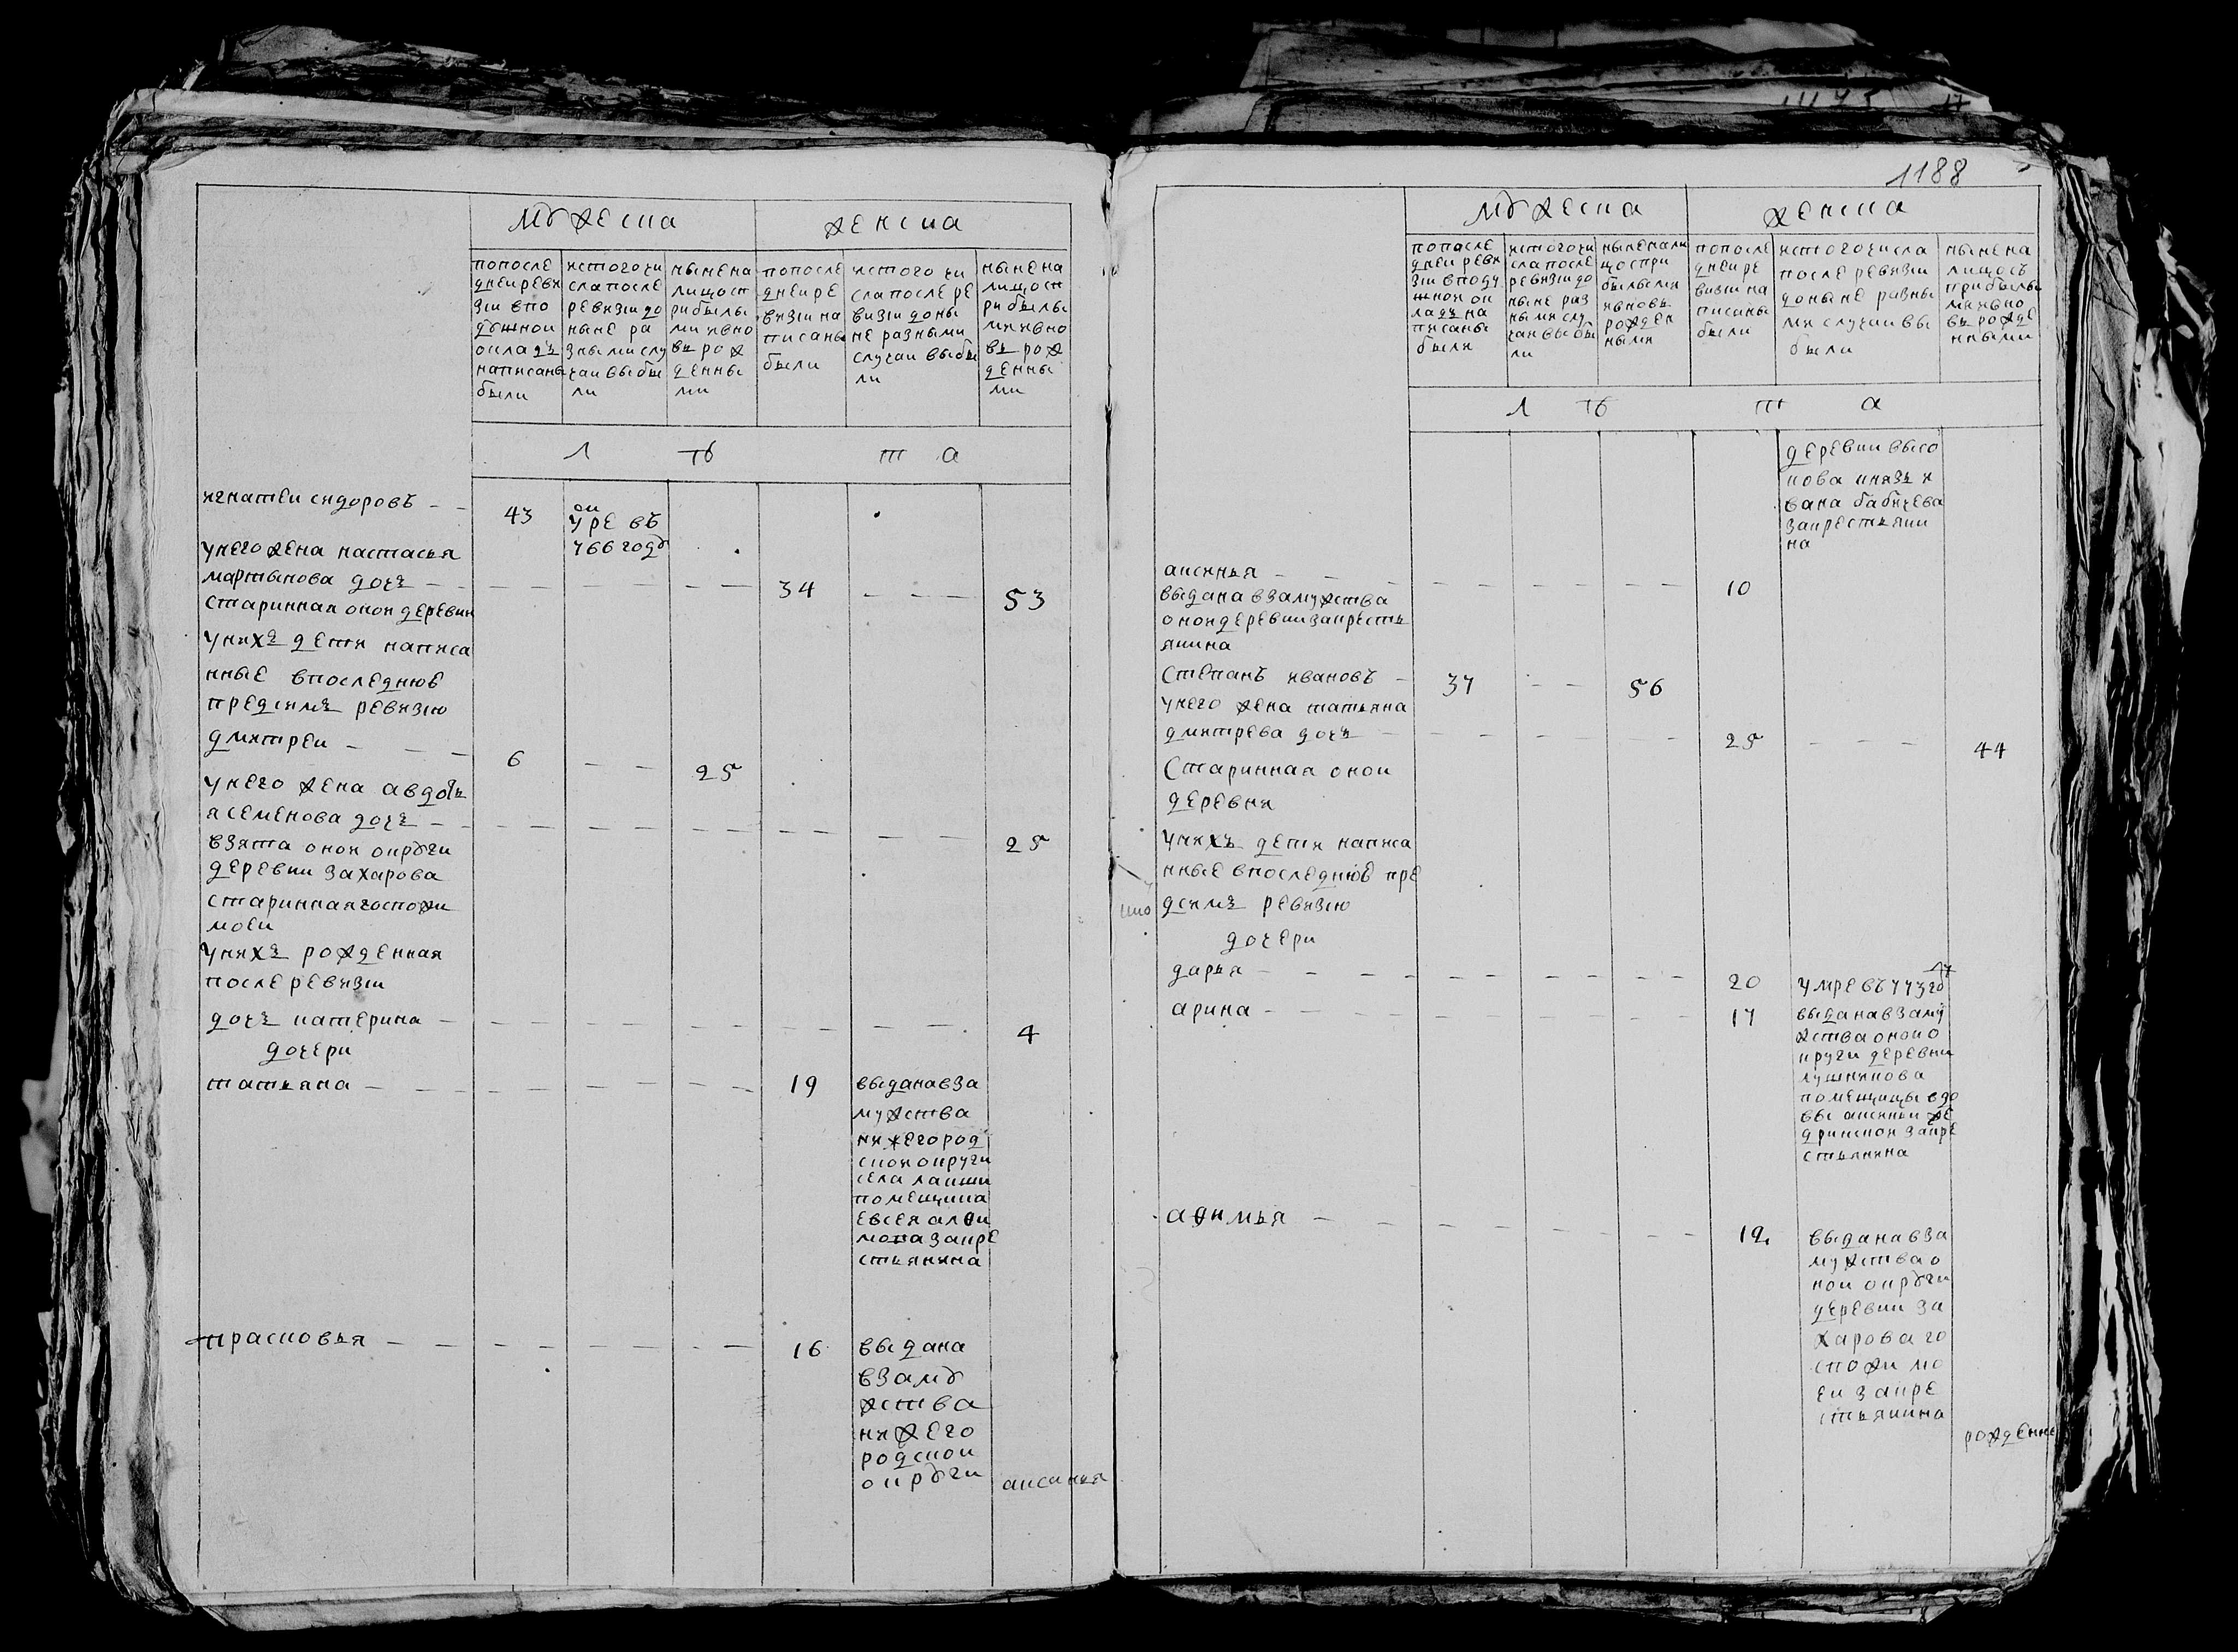 мужеска женска
попосле
дней реви
зии впо
душной
окладъ
написаны
были
истогочи
сла после
ревизии до
ныне ра
зными слу
чаи выбы
ли
ныне на
лицо сп
рибылы
ми ивно
вь рож
денны
ми
попосле
дней ре
визии на
писаны
были
истого чи
сла после ре
визии доны
не разными
случаи выбы
ли
ныне на
лицо сп
рибылы
ми ивно
вь рож
денны
ми
л ѣ т а
игнатеи сидоровъ
43
умре въ
766 годѵ
унего жена настасья
мартынова дочъ 34 53
старинная оной деревни
унихъ дети написа
нные впоследнюю
предсимъ ревизию
дмитреи
6 25
унего жена авдоть
я семенова дочъ
25
взята оной окруѓи
деревни захарова
стариннаягоспожи
моеи
унихъ рожденная
после ревизии
дочъ катерина 4
дочери
татьяна 19 выданавза
мужства
нижегород
ской округи
села лакши
помещика
евсея алѳи
мова закре
стьянина
прасковья 16 выдана
взамѵ
жства
нижего
родской
окрѵги
аксинья
1188
мужеска женска
попосле
дней реви
зии вподу
шной ок
ладъ на
писаны
были
истогочи
сла после
ревизии до
ныне раз
ными слу
чаи выбы
ли
ныне нали
цо спри
былыми
ивновь
рожден
ными
попосле
дней ре
визии на
писаны
были
истогочисла
после ревизии
доныне разны
ми случаи вы
были
ныне на
лицо съ
прибылы
ми ивно
вь рожде
нными
л ѣ т а
деревни высо
кова князь и
вана бабичева
закрестьяни
на
аксинья 10
выдана взамужства
онойдеревни закресть
янина
степанъ ивановъ 37 56
унего жена татьяна
дмитрева дочъ 25 44
старинная оной
деревни
унихъ дети написа
нные впоследнюю пре
дсимъ ревизию
дочери
дарья 20 умре въ 773 гѵ
арина 17 выданавзаму
жства оной о
круги деревни
лушникова
помещицы вдо
вы аксиньи
закре
стьянина
аѳимья 12 выдана вза
мужства о
ной окрѵги
деревни за
харова го
спожи мо
еи закре
стьянина
рожденне